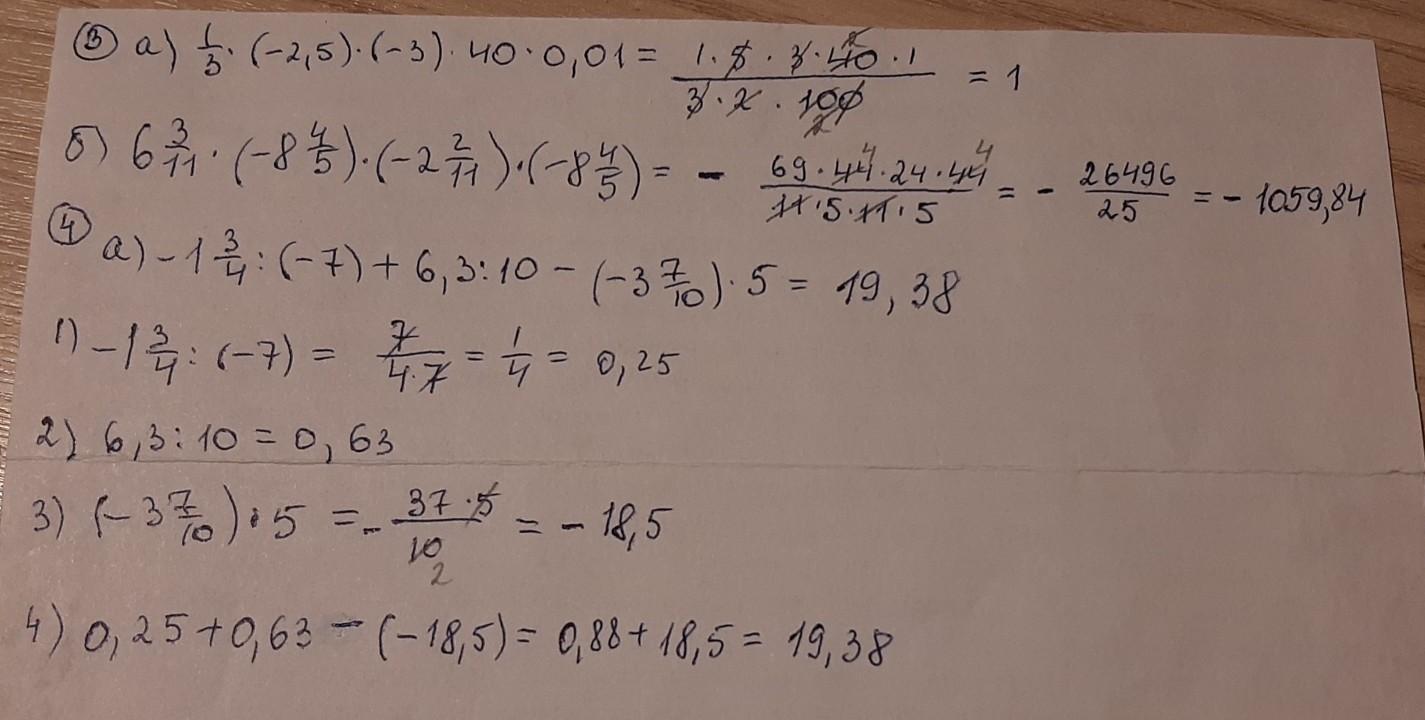 ③ а) 1/3 · (-2,5) · (-3) · 40 · 0,01 = (1 · 5 · 3 · 40 · 1)/(3 · 2 · 100) = 1
б) 6 3/11 · (-8 4/5) · (-2 2/11) · (-8 4/5) = - (69 · 44 · 24 · 44)/(11 · 5 · 11 · 5) = - 26496/25 = - 1059,84
④ а) -1 3/4 : (-7) + 6,3 : 10 - (-3 7/10) · 5 = 19,38
1) -1 3/4 : (-7) = 7/(4 · 7) = 1/4 = 0,25
2) 6,3 : 10 = 0,63
3) (-3 7/10) · 5 = - (37 · 5)/10 2 = - 18,5
4) 0,25 + 0,63 - (-18,5) = 0,88 + 18,5 = 19,38